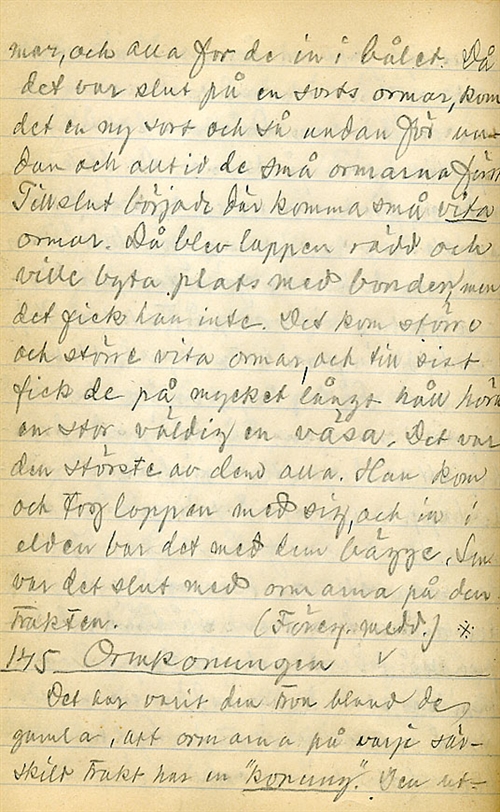 mar, och alla for de in i bålet. Då
det var slut på en sorts ormar, kom
det en ny sort och så undan för un-
dan och alltid de små ormarna först
Till slut började där komma små vita
ormar. Då blev lappen rädd och
ville byta plats med bonden, men
det fick han inte. Det kom större
och större vita ormar, och till sist
fick de på mycket långt håll höra
en stor väldig en väsa. Det var
den störste av dem alla. Han kom
och tog lappen med sig, och in i
elden bar det med dem bägge. Sen
var det slut med ormarna på den
trakten. (Föreg. medd.)
145 Ormkonungen
Det har varit den tron bland de
gamla, att ormarna på varje sär-
skild trakt har en "konung". Den ut-